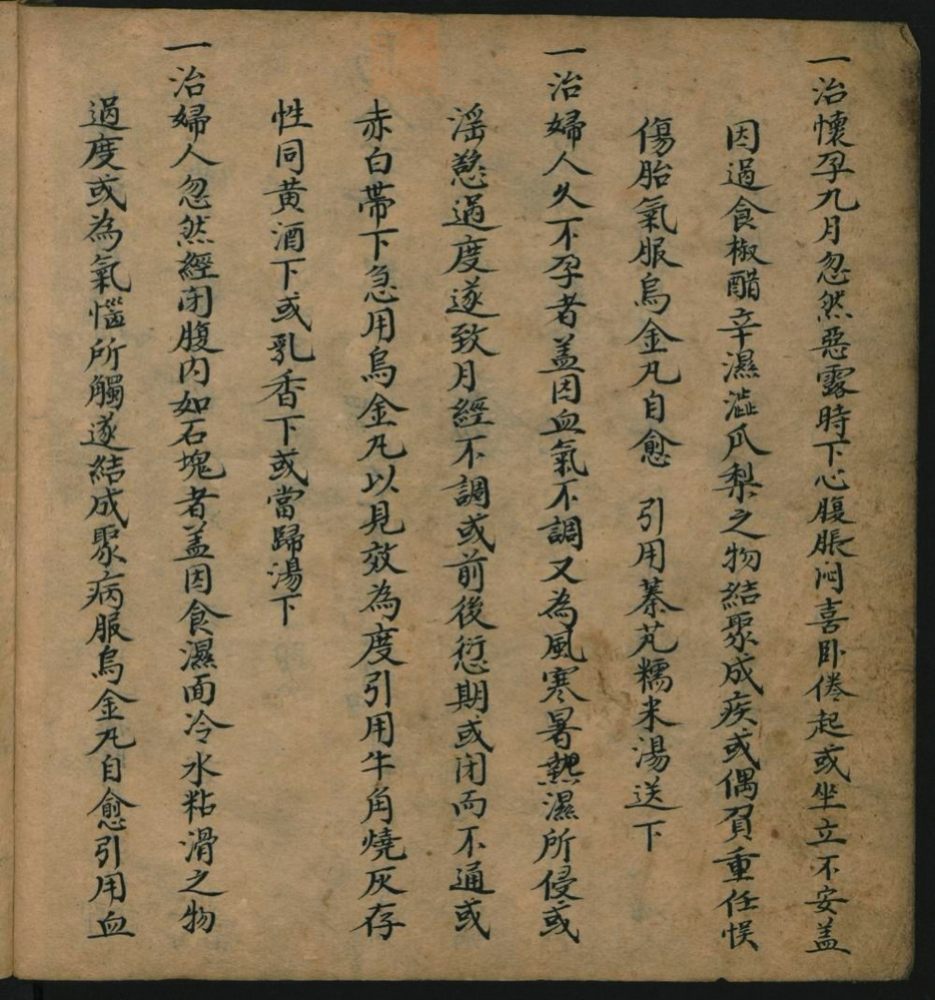 一治懷孕九月忽然惡露時下心腹脹悶喜卧倦起或坐立不安盖
因過食椒醋辛濕澁瓜梨之物結聚成疾或偶負重任悮
傷胎氣服烏金凡自愈 引用蓁艽糯米湯送下
一治婦人久不孕者盖因血氣不調又為風寒暑熱濕所侵或
滛慾過度遂致月經不調或前後愆期或闭而不通或
赤白帶下急用烏金凡以見效為度引用牛角燒灰存
性同黄酒下或乳香下或當歸湯下
一治婦人忽然經闭腹内如石塊者盖因食濕面冷水粘滑之物
過度或為氣惱所觸遂結成聚病服烏金凡自愈引用血